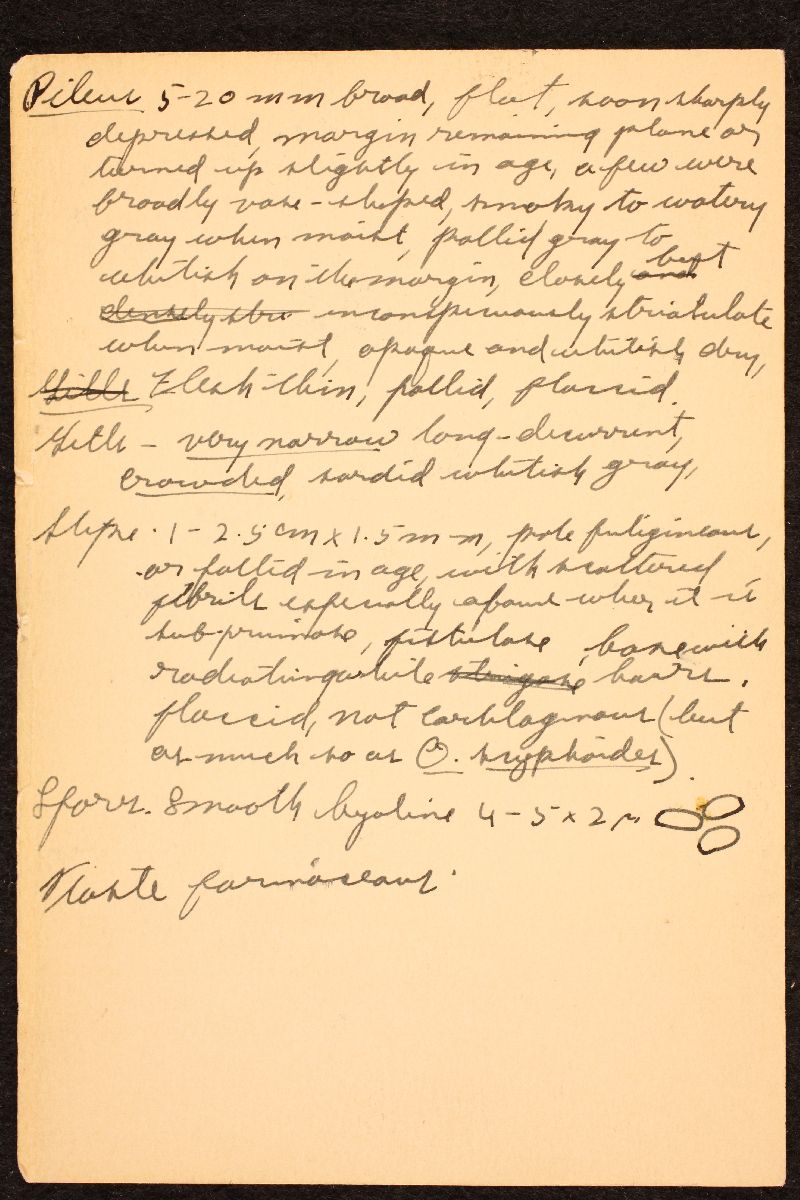 Pileus 5-20 mm broad, flat, soon sharply
depressed, margin remaining plane or
turned up slightly in age, a few were
broadly vase-shaped, smoky to watery
gray when moist, pallid gray to
whitish on the margin, closely and but
densely stri inconspicuously striatulate
when moist, opaque and whitish dry,
Gills Flesh thin, pallid, flaccid.
Gills - very narrow long-decurrent,
crowded, sordid whitish gray,
Stipe. 1-2.5 cm x 1.5 mm, pale fuligineous,
or pallid in age, with scattered
fibrils especially above when it is
sub-pruinose, fistulose, base with
radiating white strigose hairs.
flaccid, not cartilaginous (but
as much so as O.
Spores. Smooth hyaline 4-5 x 2 μ
Taste farinaceous.